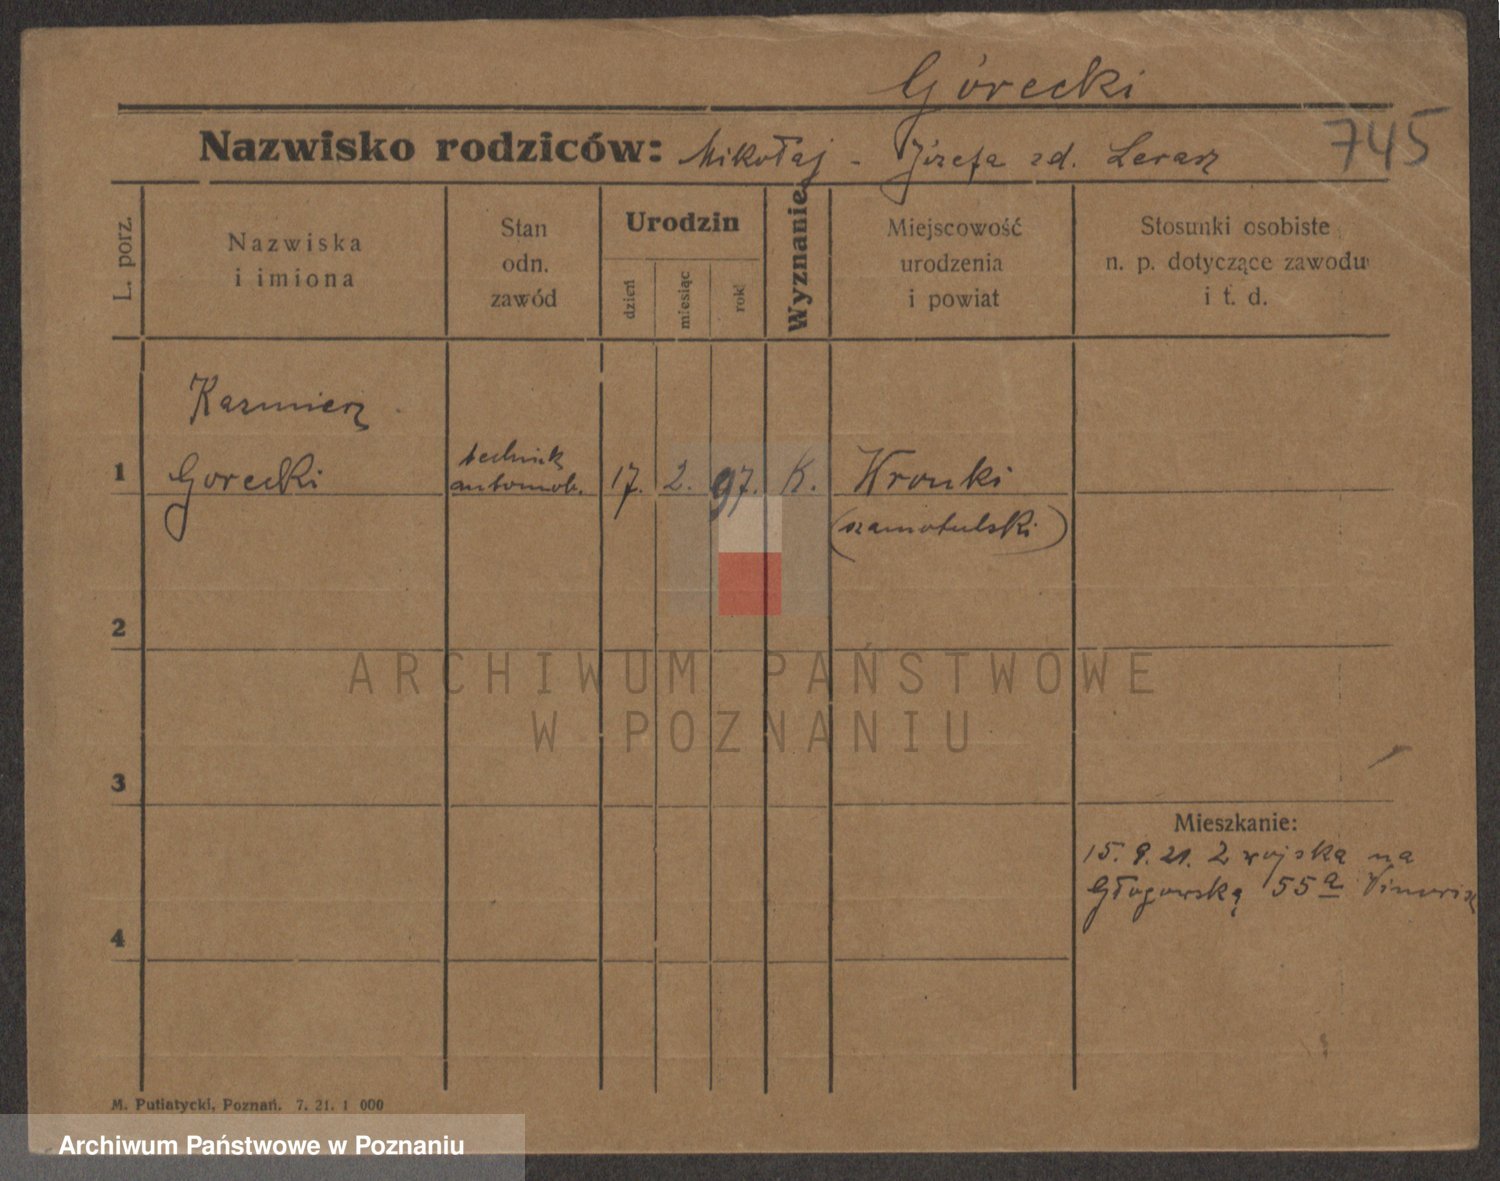 Górecki
Nazwisko rodziców: Mikołaj - Józefa zd. Lerasz
745
L. porz.
Nazwiska
i imiona
Stan
odn.
zawód
Urodzin
dzień
miesiąc
rok
Wyznanie
Miejscowość
urodzenia
i powiat
Stosunki osobiste
n. p. dotyczące zawodu
i t. d.
Kazmierz
1 Gorecki
technik
automob.
17. 2. 97. K. Wronki
(szamotulski)
2
ARCHIWUM PAŃSTWOWE
W POZNANIU
3
Mieszkanie:
15. 9. 21. Z wojska na
Głogowską 55a
4
M. Putiatycki, Poznań. 7. 21. 1 000
Archiwum Państwowe w Poznaniu